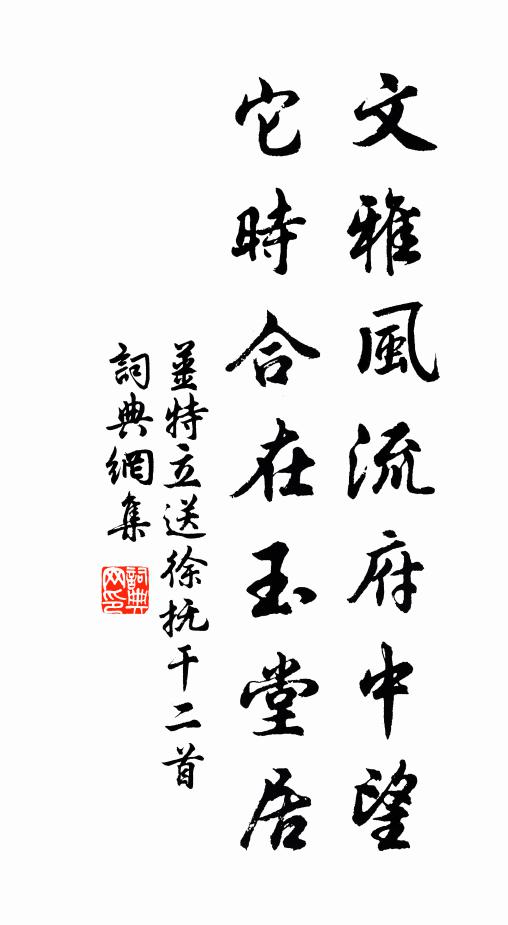 文雅風流府中望
它時合在玉堂居
薑特立送徐抚干二首
詞典網集
詞典網印